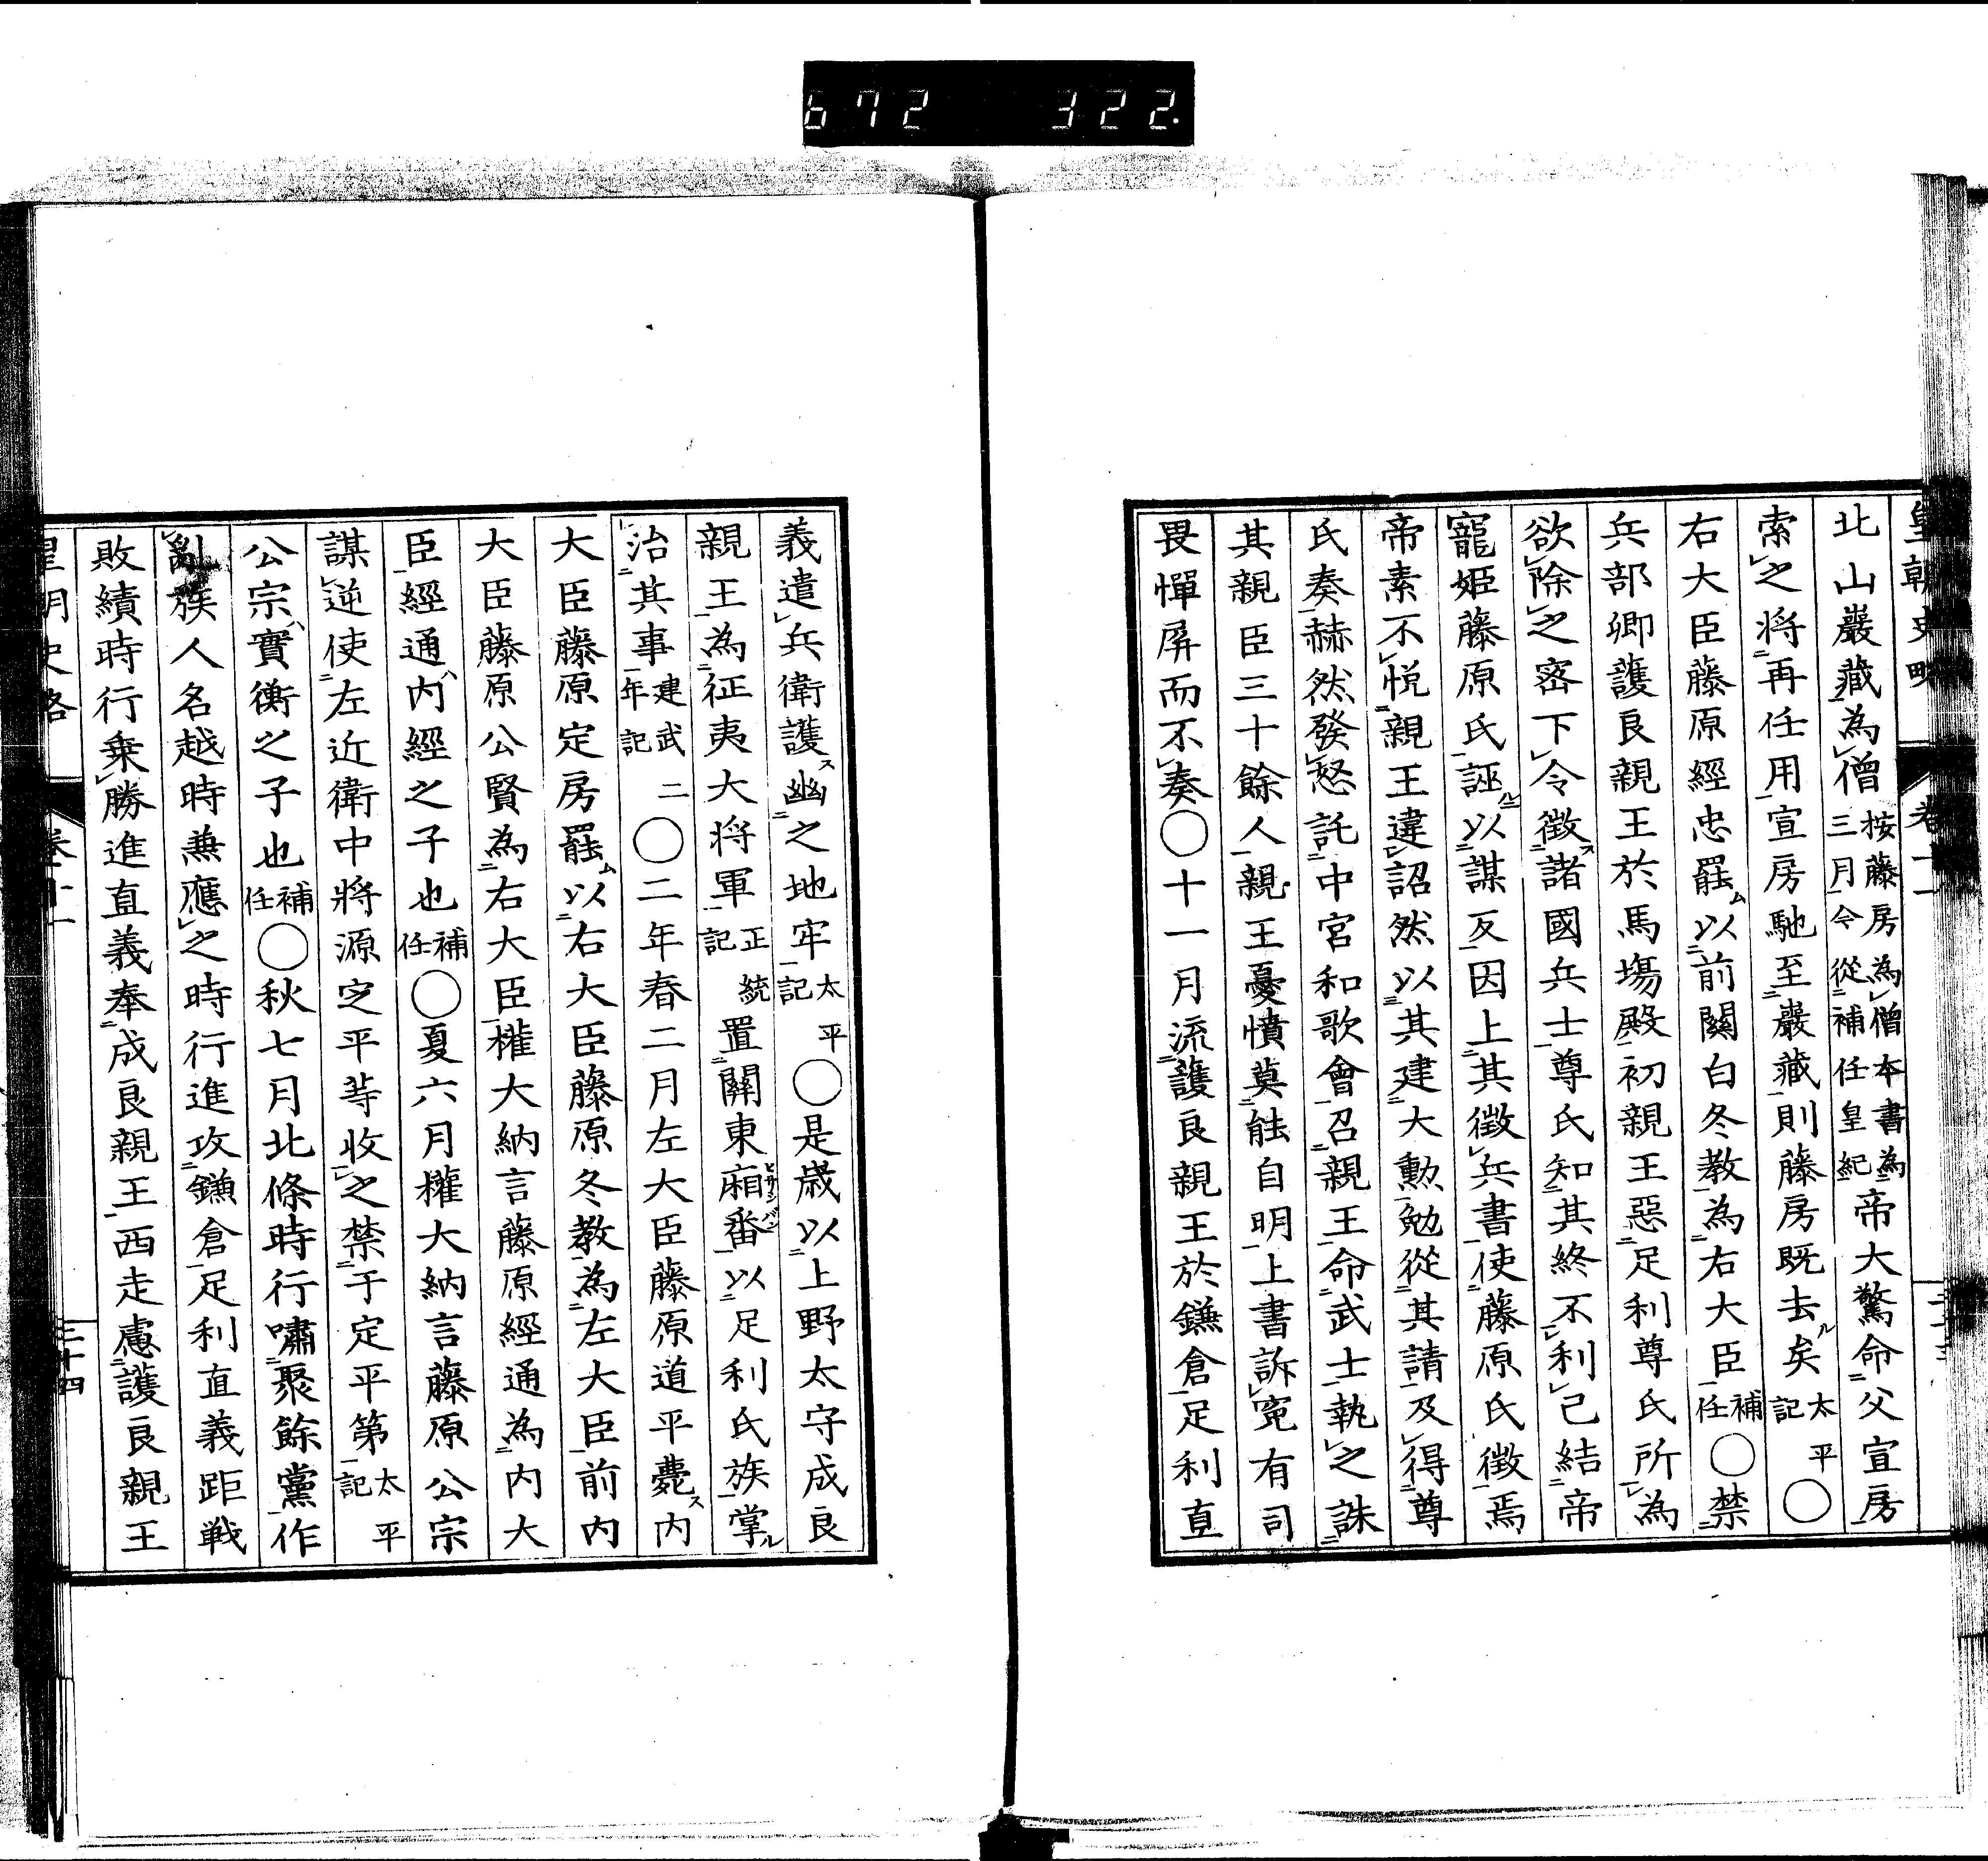 672 322.
皇朝史略 卷十一
北山巖藏為僧按藤房為僧本書為三月今從補任皇紀帝大驚命父宣房
索之將再任用宣房馳至巖藏則藤房既去矣太平記〇
右大臣藤原經忠罷以前關白冬教為右大臣補任〇禁
兵部卿護良親王於馬場殿初親王惡足利尊氏所為
欲除之密下令徵諸國兵士尊氏知其終不利己結帝
寵姬藤原氏誣以謀反因上其徵兵書使藤原氏徵焉
帝素不悅親王違詔然以其建大勳勉從其請及得尊
氏奏赫然發怒託中宮和歌會召親王命武士執之誅
其親臣三十餘人親王憂憤莫能自明上書訴寃有司
畏憚屏而不奏〇十一月流護良親王於鎌倉足利直
義遣兵衛護幽之地牢太平記〇是歲以上野太守成良
親王為征夷大將軍正統記置關東廂番以足利氏族掌
治其事建武二年記〇二年春二月左大臣藤原道平薨內
大臣藤原定房罷以右大臣藤原冬教為左大臣前內
大臣藤原公賢為右大臣權大納言藤原經通為內大
臣經通內經之子也補任〇夏六月權大納言藤原公宗
謀逆使左近衛中將源定平等收之禁于定平第太平記
公宗實衡之子也補任〇秋七月北條時行嘯聚餘黨作
亂族人名越時兼應之時行進攻鎌倉足利直義距戰
敗績時行乘勝進直義奉成良親王西走慮護良親王
皇朝史略 卷十一 二十四